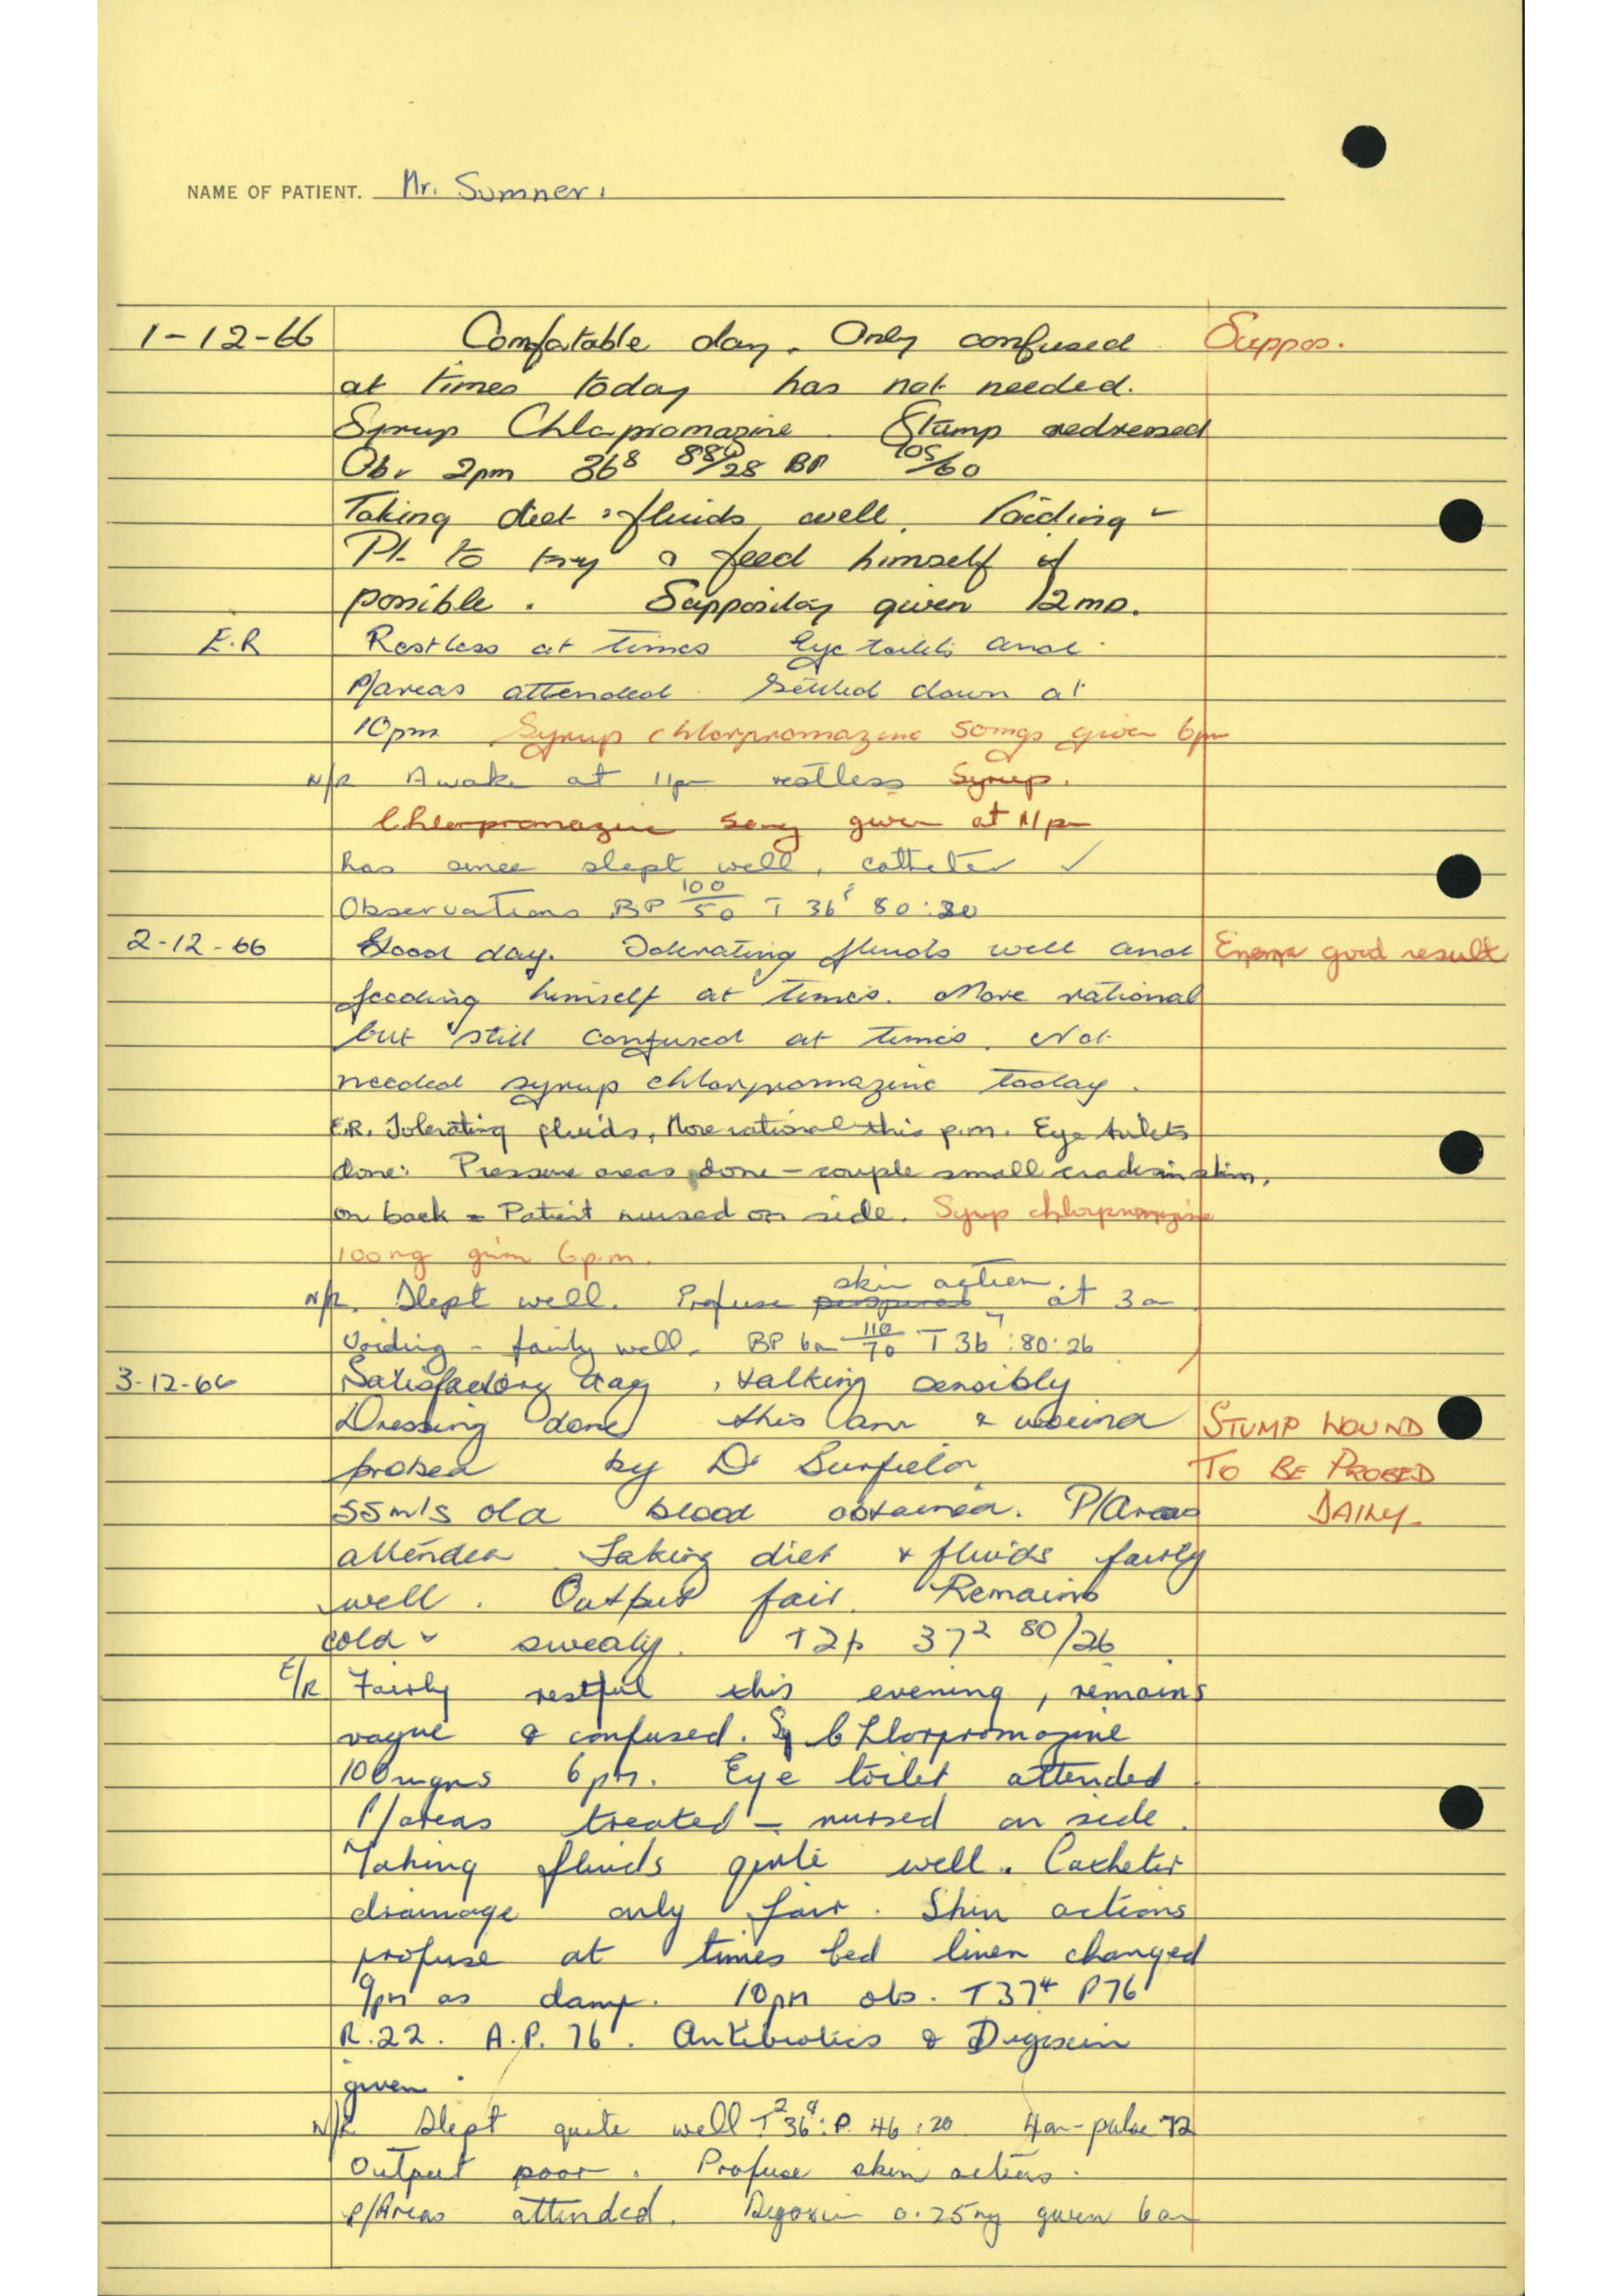 NAME OF PATIENT. Mr. Sumner.
1-12-66 Comfatable day. Only confused Suppos.
at times today has not needed.
Syrup Chlapromazine. Stump redressed
Obs 2pm 36⁸ 88/28 BP 105/60
Taking diet & fluids well. Voiding
Pt. to try & feed himself if
possible. Suppository given 12md.
E.R Restless at times Eye toilets and
P/areas attended. Settled down at
10pm Syrup chlorpromazine 50mgs given 6pm
N/R Awake at 11pm restless Syrup.
Chlorpromazine 50mg given at 11pm
has since slept well, catheter ✓
Observations BP 100/50 T 36⁵ 80:20
2-12-66 Good day. Tolerating fluids well and Enema good result
feeding himself at times. More rational
but still confused at times. Not
needed syrup chlorpromazine today.
E.R. Tolerating fluids, More rational this p.m. Eye toilets
done: Pressure areas done - couple small cracks in skin,
on back - Patient nursed on side. Syrup chlorpromazine
100mg given 6p.m.
N/R. Slept well. Profuse skin action at 3a
Voiding - fairly well. BP 6am 110/70 T 36⁷:80:26
3-12-66 Satisfactory day, talking sensibly
Dressing done this am & wound STUMP WOUND
probed by Dr TO BE PROBED
55mls old blood obtained. P/Areas DAILY
attended Taking diet & fluids fairly
well. Output fair. Remains
cold & sweaty. T2p 37² 80/26
E/R Fairly restful this evening, remains
vague & confused. Sy Chlorpromazine
100mgms 6pm. Eye toilet attended
P/areas treated - nursed on side.
Taking fluids quite well. Catheter
drainage only fair. Skin actions
profuse at times bed linen changed
9pm as damp. 10pm obs. T37⁴ P76
R.22. A.P. 76. Antibiotics & Digoxin
given.
N/R Slept quite well T² 36⁸: P. 46:20 4am-pulse 72
Output poor. Profuse skin actions.
P/Areas attended. Digoxin 0.25mg given 6am